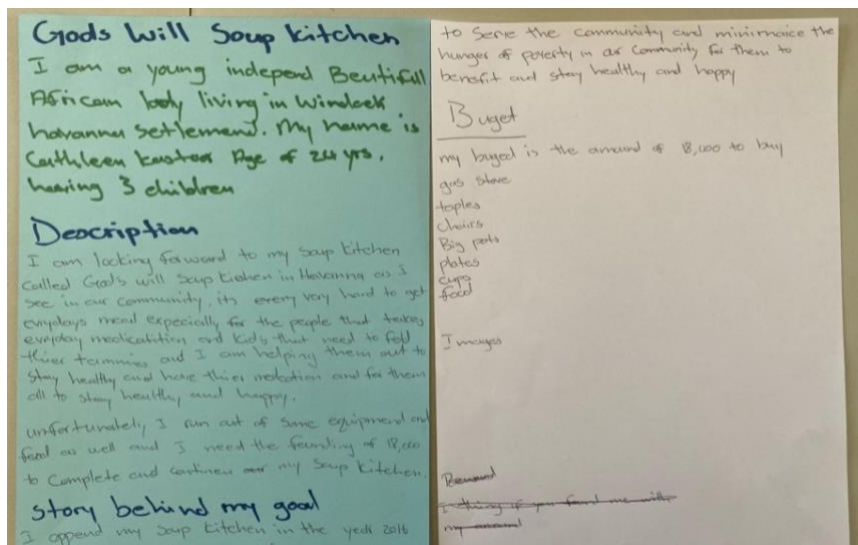 Gods Will Soup kitchen
I am a young independ Beutifull
African lady living in Windeek
havanna Settlemend. My name is
Cathleen kastoor Age of 24 yrs,
having 3 children
Description
I am looking forward to my Soup kitchen
Called Gods will Soup kichen in Havanna as I
See in our Community, its every very hard to get
everydays meal expecially for the people that takes
everyday medicatition and kids that need to full
thier tummies and I am helping them out to
Stay healthy and have thier medication and for them
all to stay healthy and happy.
unfortunately I run out of some equipmend and
food as well and I need the founding of 18,000
to Complete and Continew my Soup kitchen.
Story behind my goal
I append my Soup kitchen in the year 2016
to Serve the community and minimaice the
hunger of poverty in our Community for them to
benefit and stay healthy and happy
Buget
my buged is the amound of 18,000 to buy
gas stove
taples
chairs
Big pots
plates
cups
food
Images
I thing if you found me with
my amound